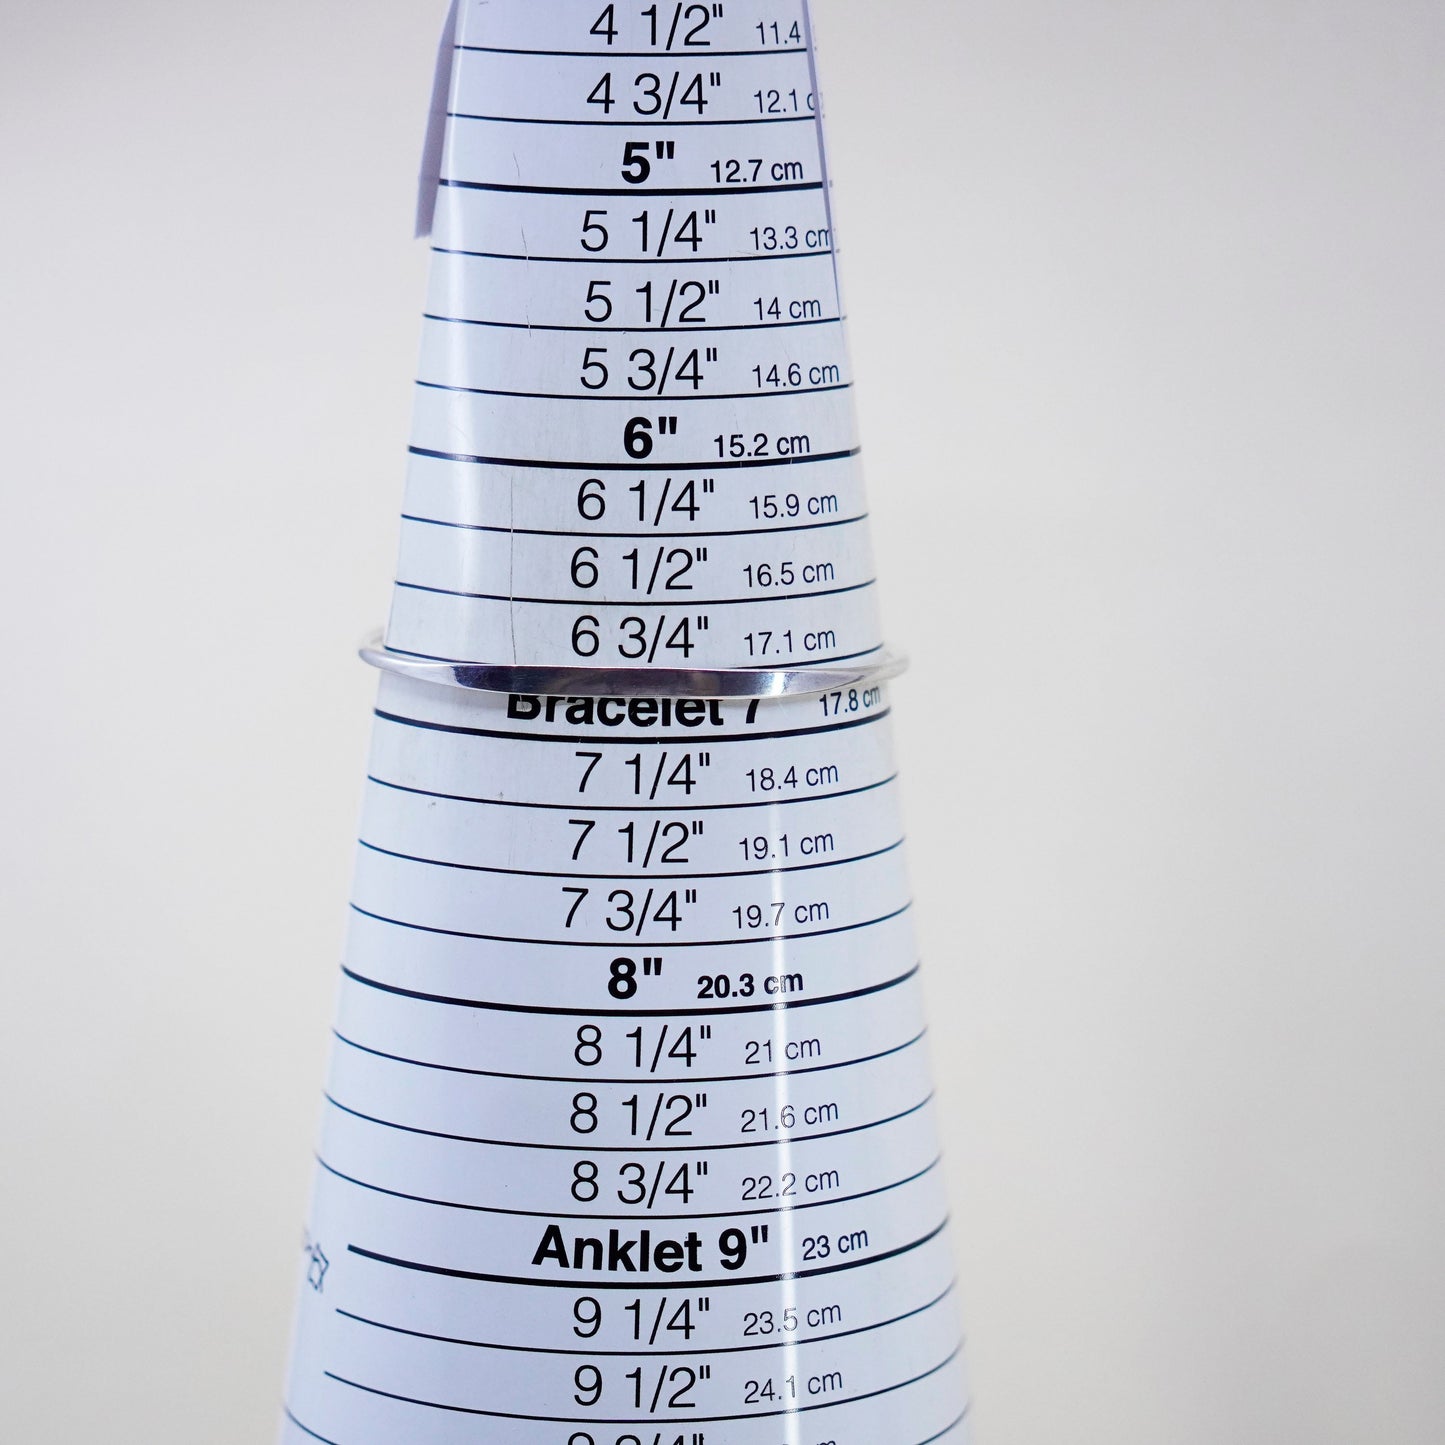 4 1/2" 11.4
4 3/4" 12.1 c
5" 12.7 cm
5 1/4" 13.3 cm
5 1/2" 14 cm
5 3/4" 14.6 cm
6" 15.2 cm
6 1/4" 15.9 cm
6 1/2" 16.5 cm
6 3/4" 17.1 cm
Bracelet 7 17.8 cm
7 1/4" 18.4 cm
7 1/2" 19.1 cm
7 3/4" 19.7 cm
8" 20.3 cm
8 1/4" 21 cm
8 1/2" 21.6 cm
8 3/4" 22.2 cm
Anklet 9" 23 cm
9 1/4" 23.5 cm
9 1/2" 24.1 cm
9 3/4"